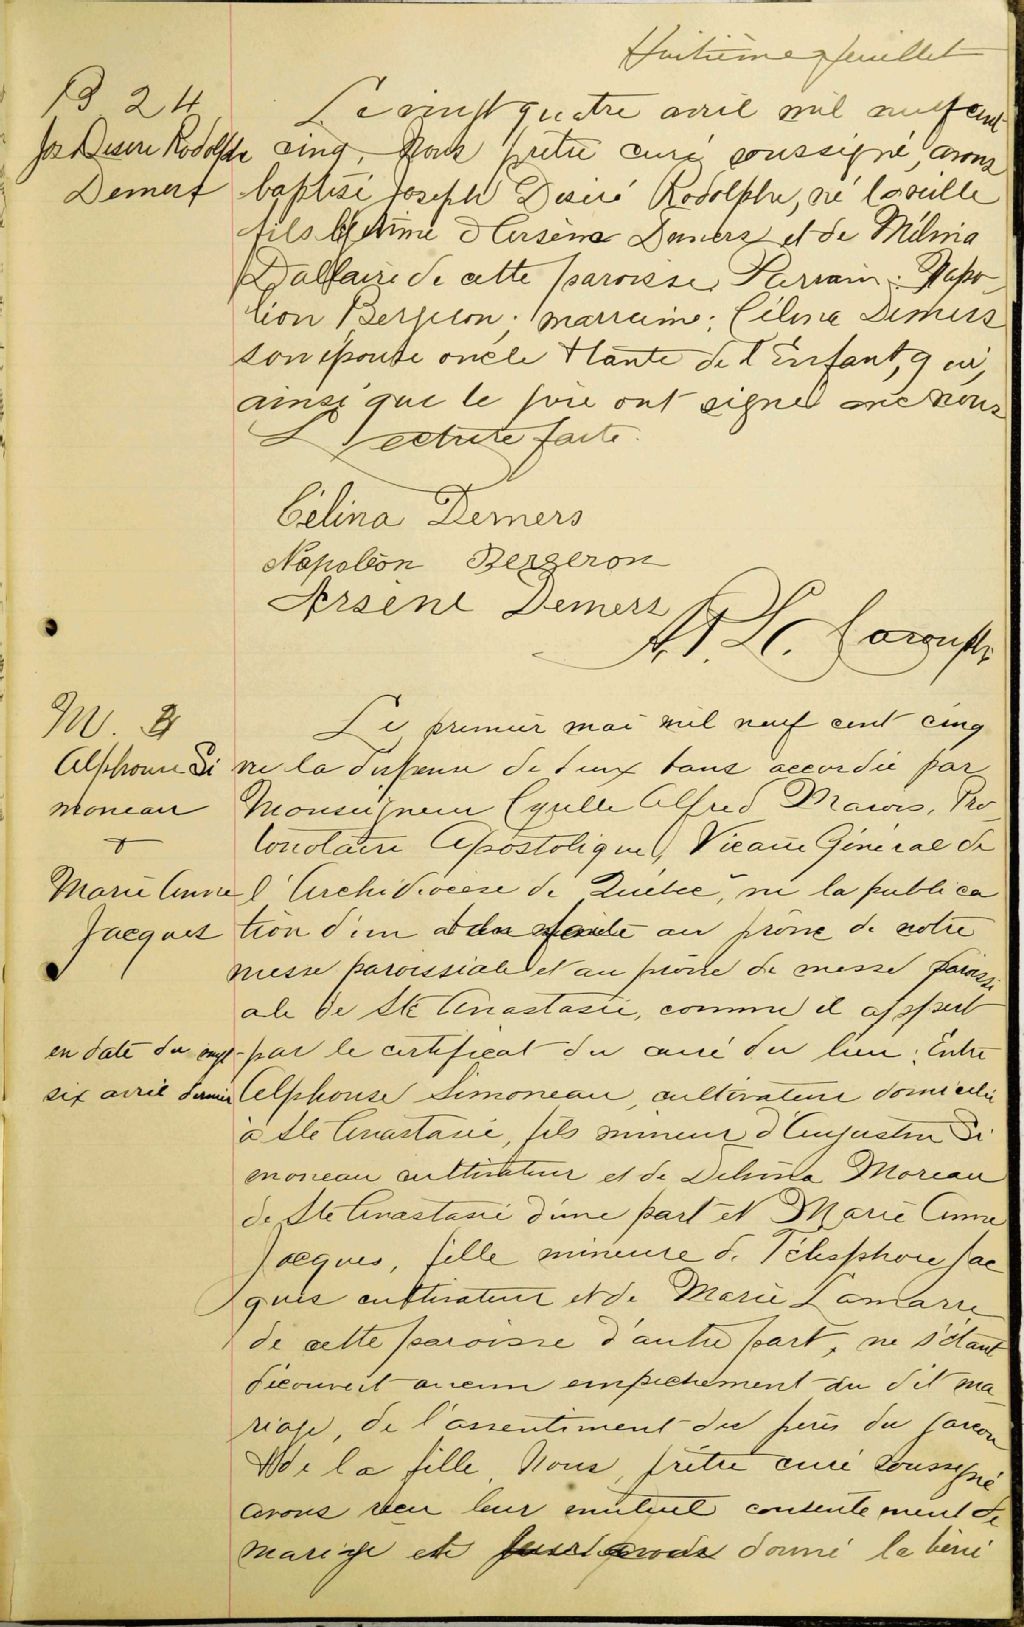 Huitième feuillet
B 24
Jos Desiré Rodolphe
Demers
Le vingt quatre avril mil neuf cent
cinq, Nous prêtre curé soussigné, avons
baptisé Joseph Desiré Rodolphe, né la veille
fils légitime d'Arsène Demers et de Mélina
Dallaire de cette paroisse Parrain: Napo-
léon Bergeron; marraine; Célina Demers
son épouse oncle & tante de l'Enfant, qui,
ainsi que le père ont signé avec nous
Lecture faite.
Célina Demers
Napoléon Bergeron
Arsène Demers
M.
Alphonse Si
moneau
&
Marie Anne
Jacques
Le premier mai mil neuf cent cinq
vu la dispense de deux bans accordée par
Monseigneur Cyrille Alfred Marois, Pro-
tonotaire Apostolique, Vicaire Général de
l'Archidiocèse de Québec, vu la publica
tion d'un ban faite au prône de notre
messe paroissiale et au prône de messe paroissi
ale de Ste Anastasie, comme il appert
en date du vingt-
six avril dernier
par le certificat du curé du lieu; Entre
Alphonse Simoneau, cultivateur domicilié
à Ste Anastasie, fils mineur d'Augustin Si
moneau cultivateur et de Delvina Moreau
de Ste Anastasie d'une part et Marie Anne
Jacques, fille mineure de Télesphore Jac
ques cultivateur et de Marie Lamarre
de cette paroisse d'autre part, ne s'étant
découvert aucun empêchement au dit ma-
riage, de l'assentiment des pères du garçon
& de la fille, Nous, prêtre curé soussigné
avons reçu leur mutuel consentement de
mariage et donné la béné